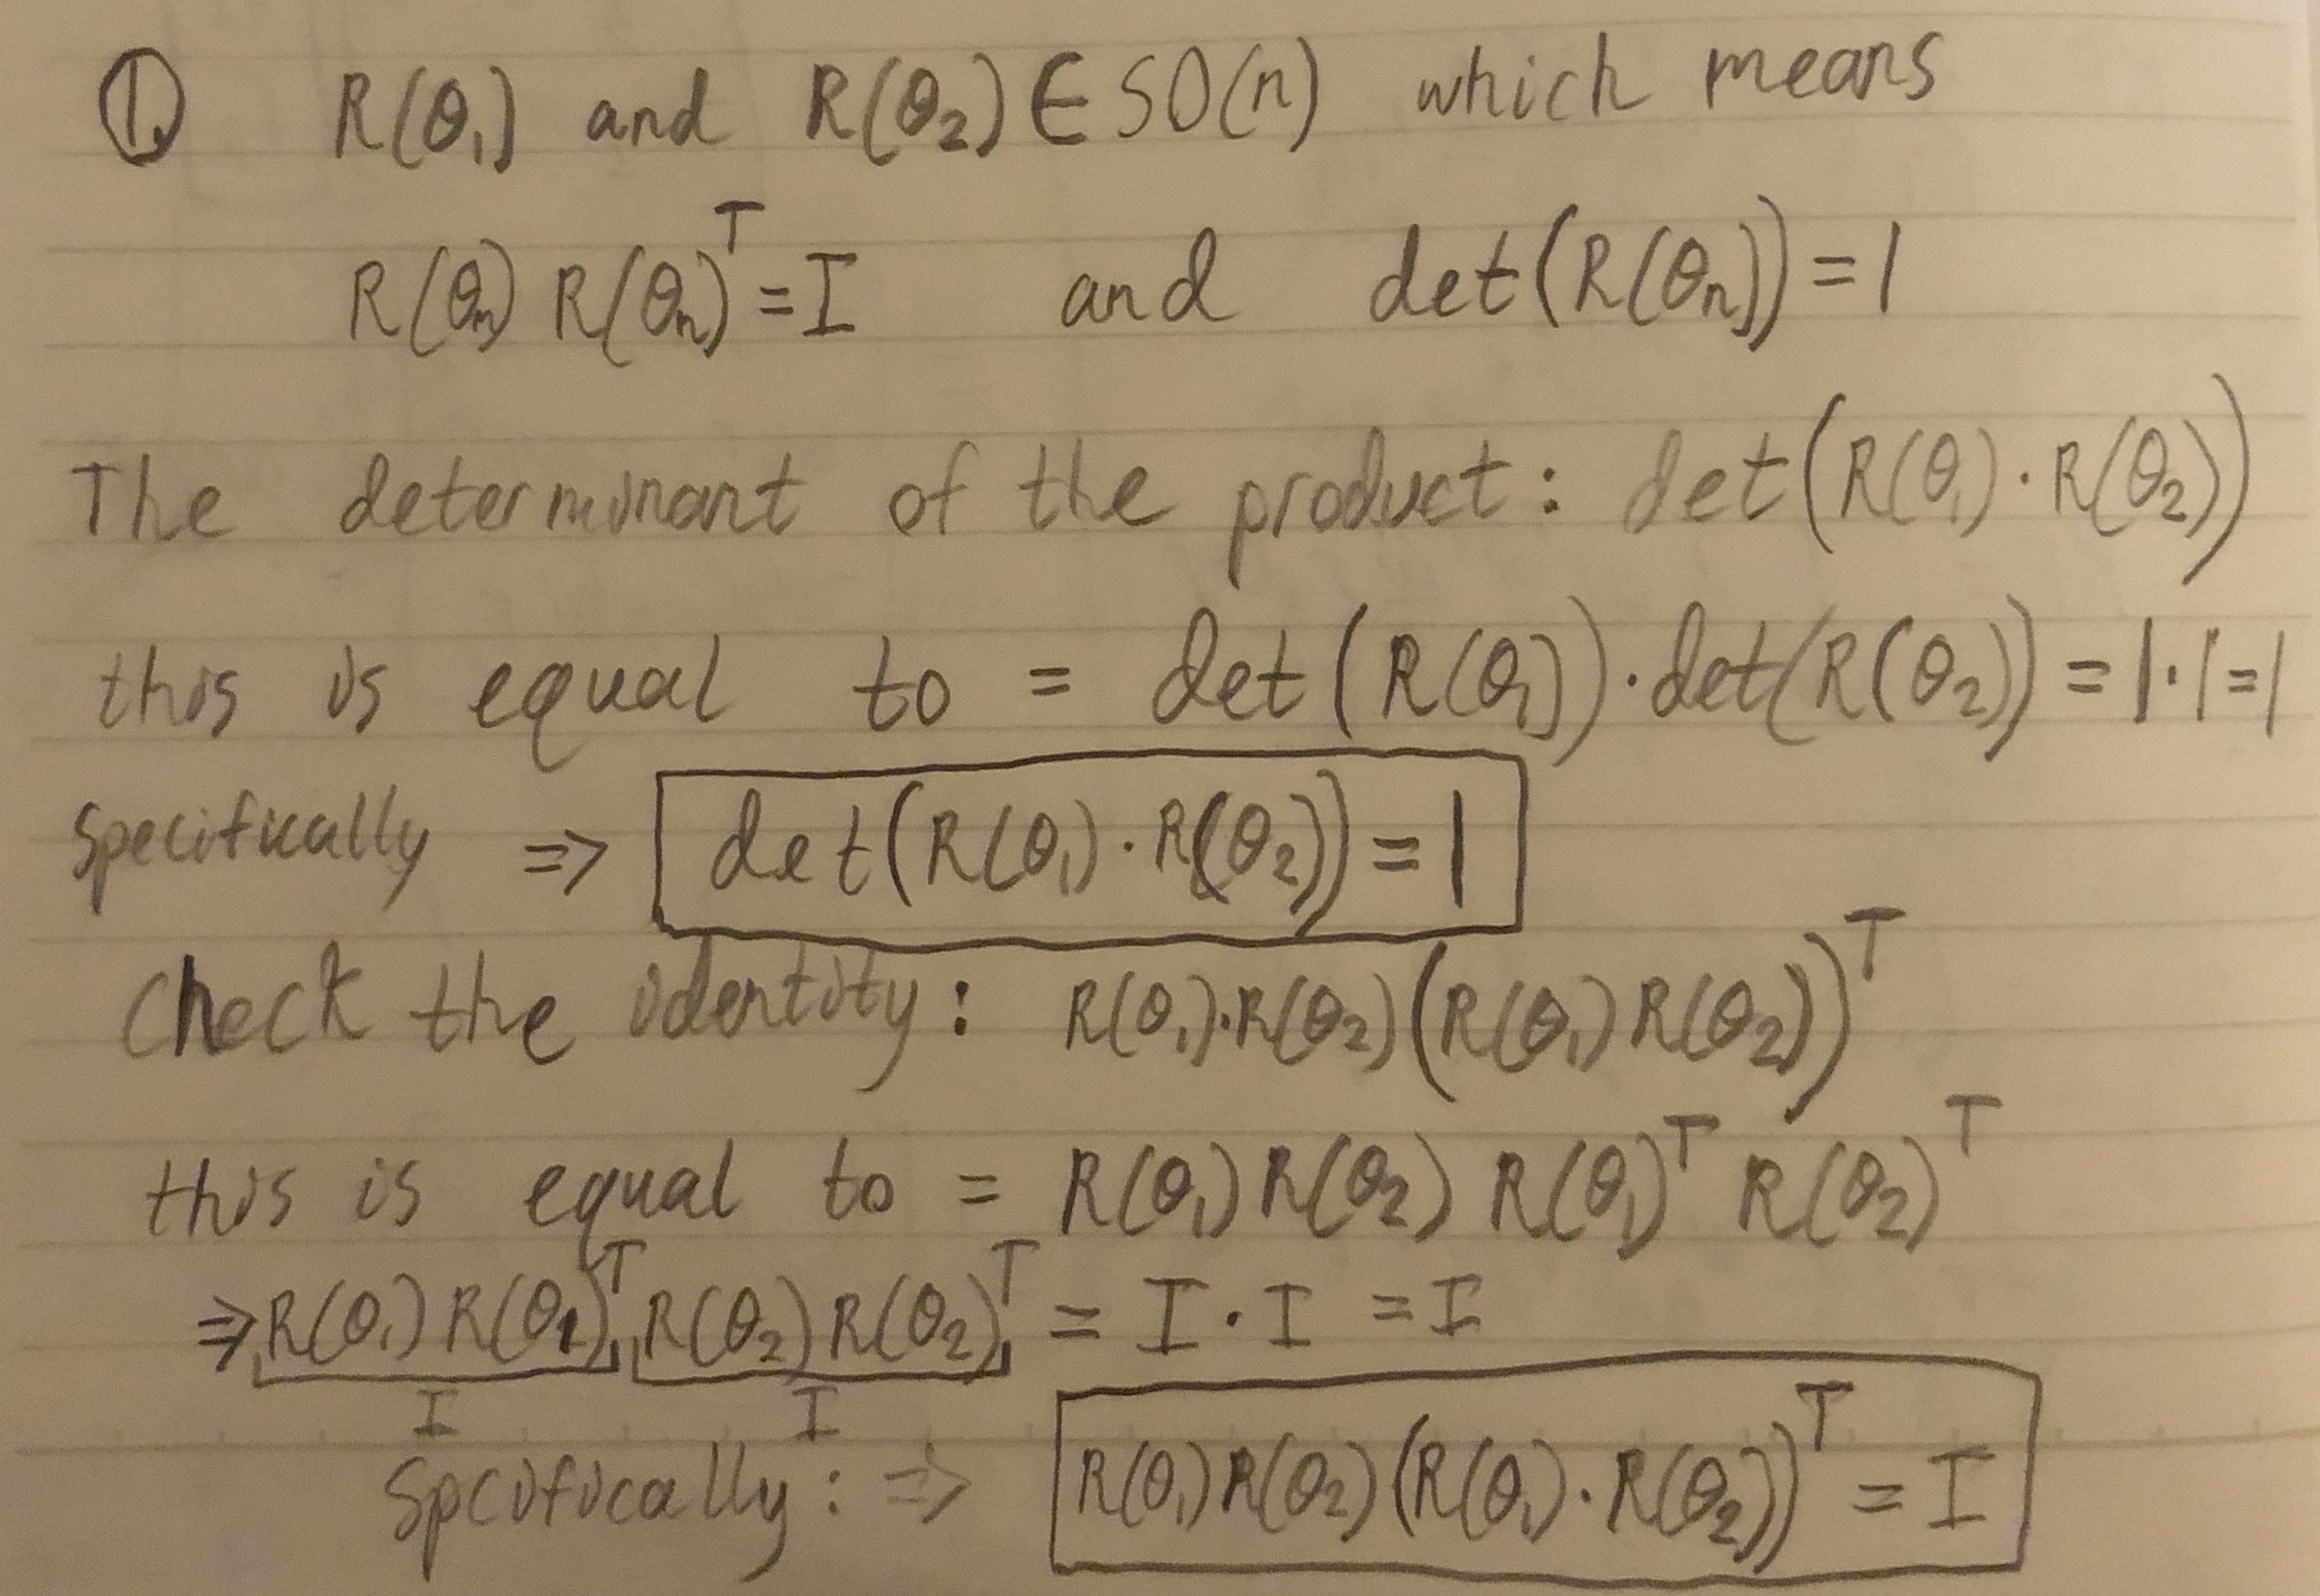 ① R(θ₁) and R(θ₂) ∈ SO(n) which means
R(θₙ) R(θₙ)ᵀ = I and det(R(θₙ)) = 1
The determinant of the product: det(R(θ₁)·R(θ₂))
this is equal to = det(R(θ₁))·det(R(θ₂)) = 1·1 = 1
specifically => det(R(θ₁)·R(θ₂)) = 1
Check the identity: R(θ₁)·R(θ₂)(R(θ₁)R(θ₂))ᵀ
this is equal to = R(θ₁)R(θ₂) R(θ₁)ᵀ R(θ₂)ᵀ
=> R(θ₁) R(θ₁)ᵀ R(θ₂) R(θ₂)ᵀ = I · I = I
I I
Spcifically: => R(θ₁)R(θ₂)(R(θ₁)·R(θ₂))ᵀ = I